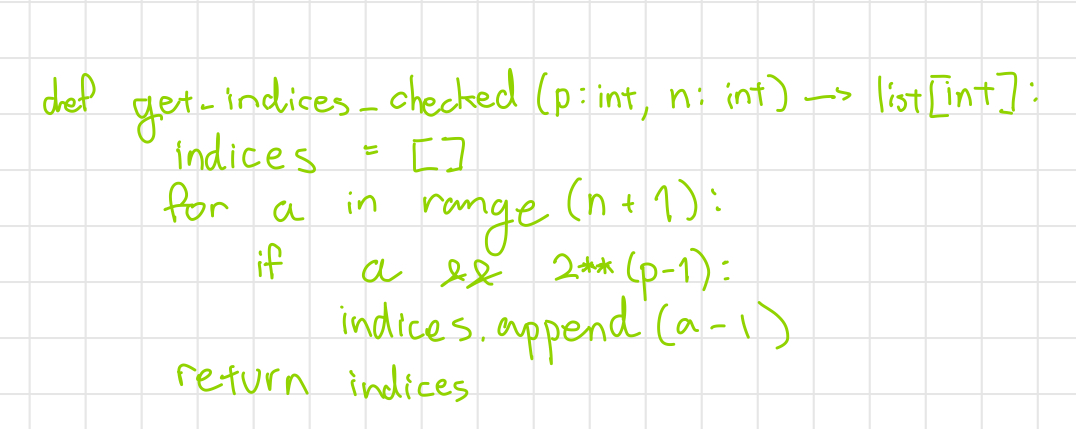 def get_indices_checked (p: int, n: int) -> list[int]:
indices = []
for a in range (n + 1):
if a && 2**(p-1):
indices.append(a-1)
return indices